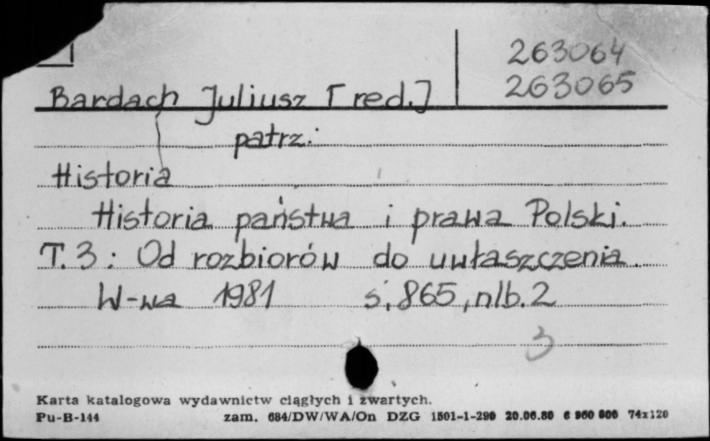 263064
263065
Bardach Juliusz [red.]
patrz:
Historia
Historia państwa i prawa Polski.
T. 3: Od rozbiorów do uwłaszczenia
W-wa 1981 s. 865, nlb. 2
3
Karta katalogowa wydawnictw ciągłych i zwartych.
Pu-B-144 zam. 684/DW/WA/On DZG 1501-1-290 20.06.80 74x120